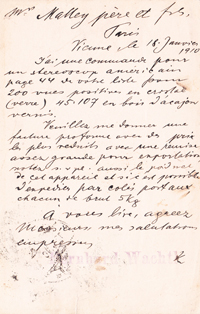 Mrs Mattey père et fils,
Paris
Vienne, le 18 Janvier
1910
J'ai une commande pour
un stereoscop americain
page 44 de votre liste pour
200 vues positives en
(verre) 45.107 en bois d'acajou
verni.
Veuillez me donner une
facture proforme avec des prix
les plus reduits avec une remise
assez grande pour exportation
notez s.v.pl. aussi le
de cet appareil et si c'est possible
D'expedier par colis postaux
chacun de brut 5 kg
A vous lire, agreez
Messieurs mes salutations
empressees